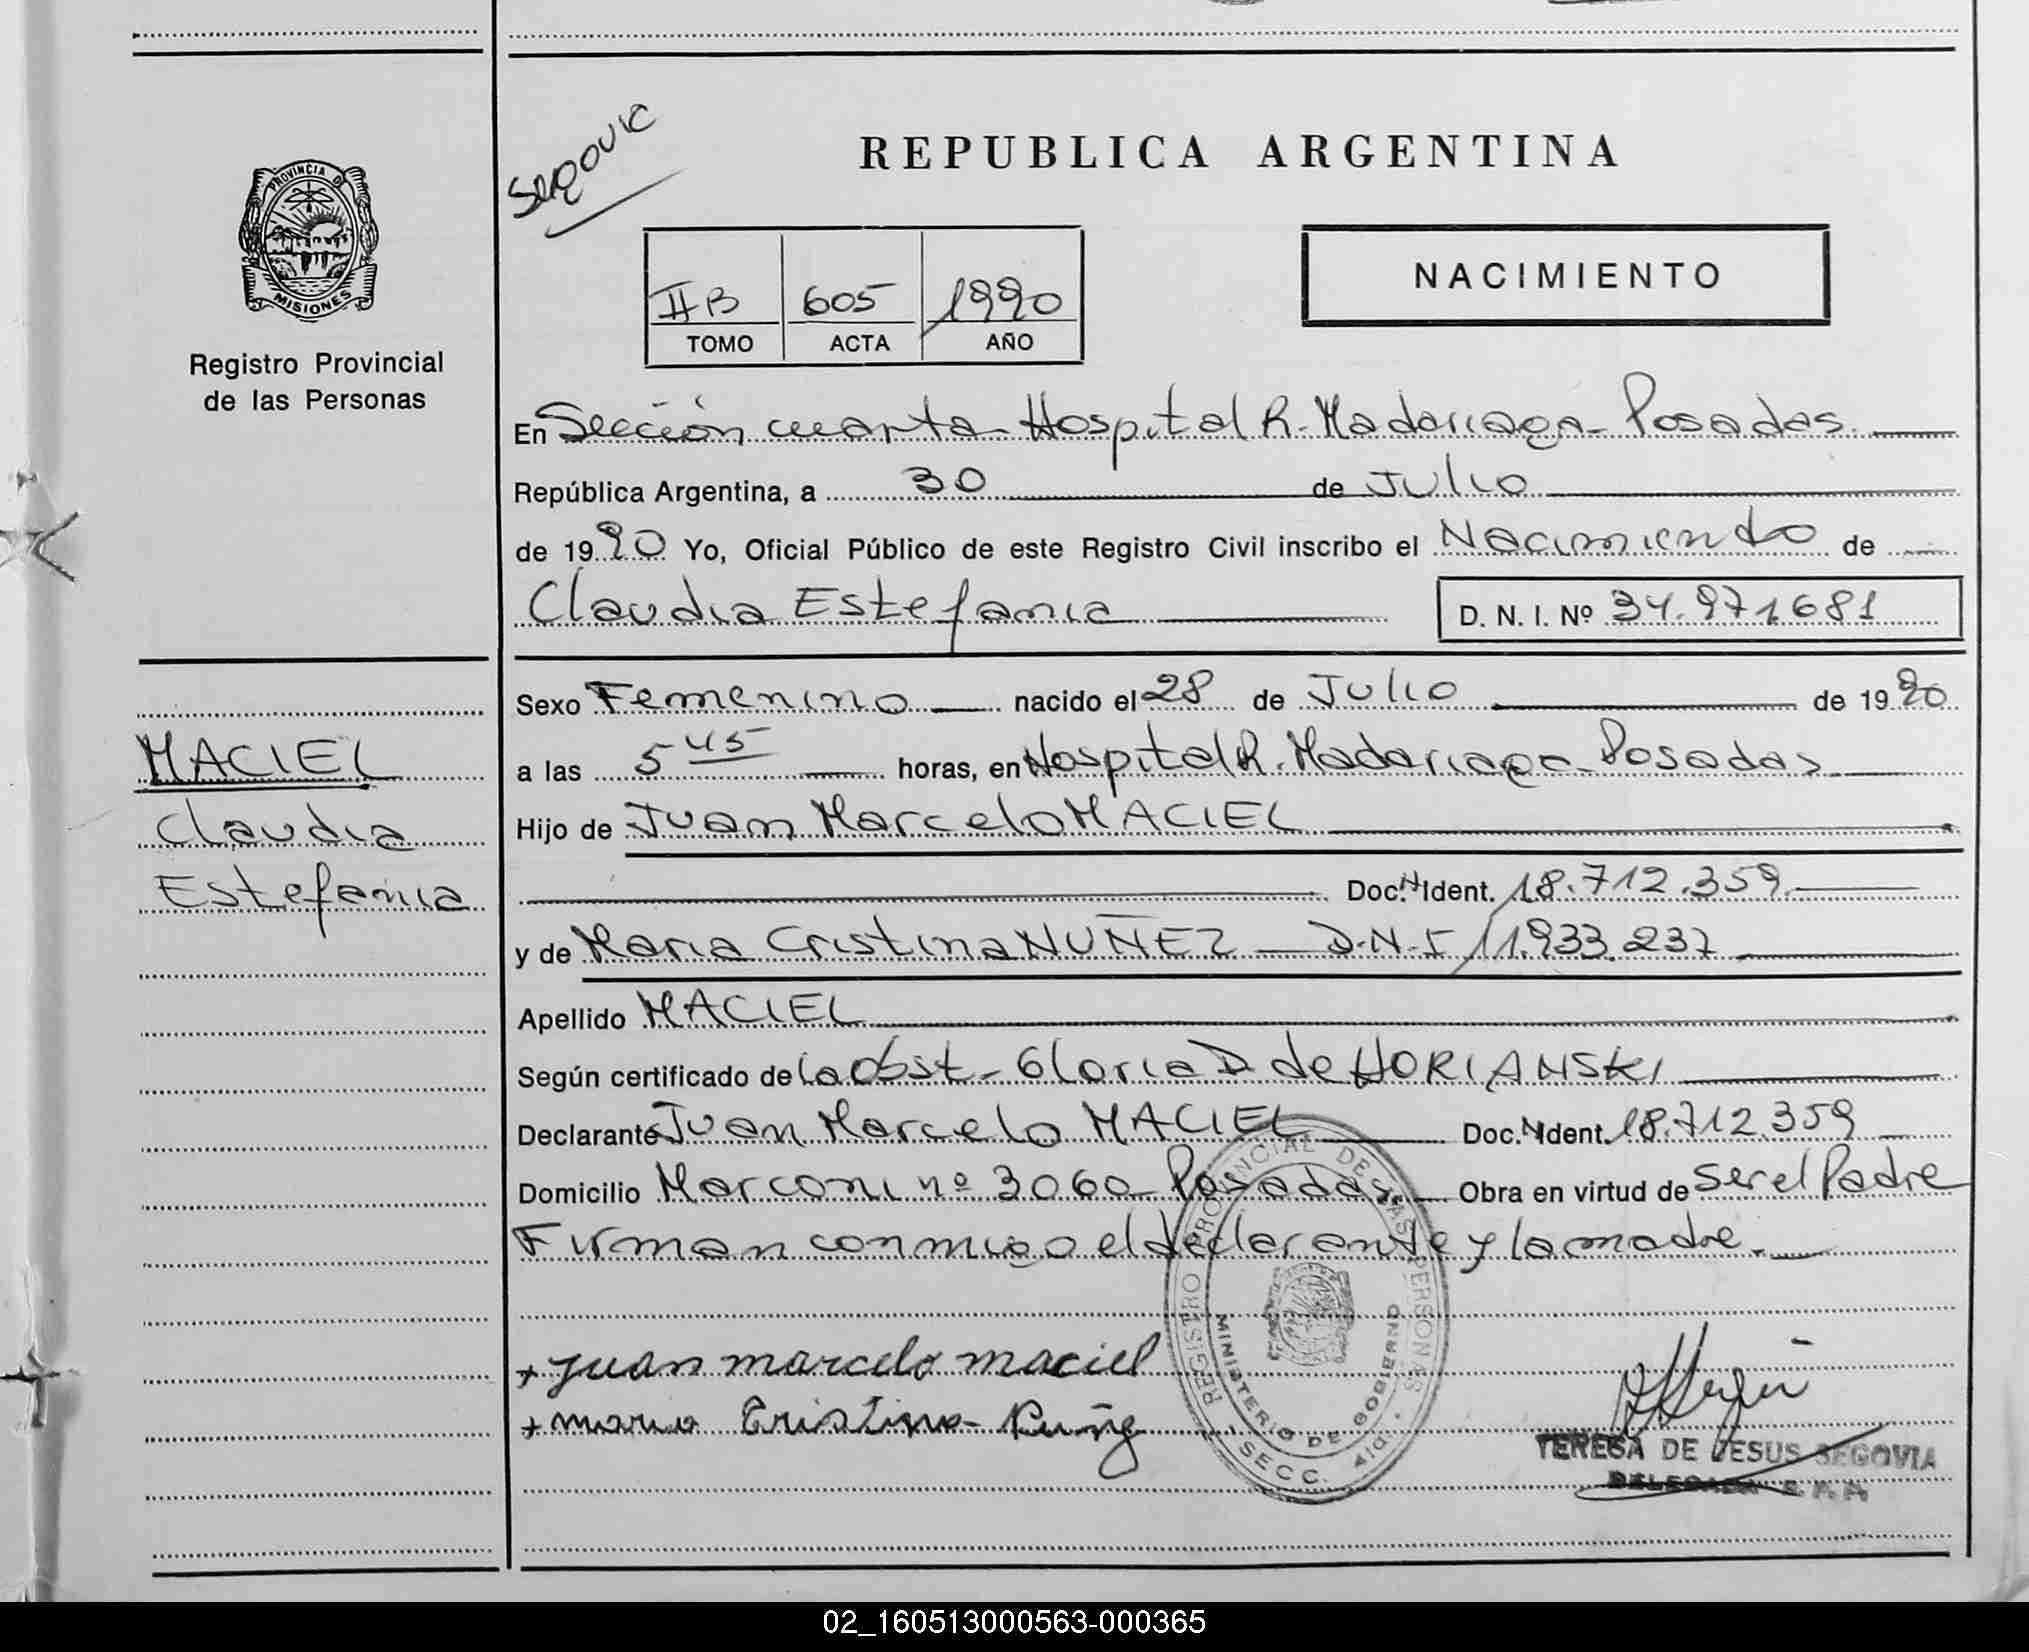 Segovic
REPUBLICA ARGENTINA
PROVINCIA DE MISIONES
Registro Provincial
de las Personas
IIB 605 1990
TOMO ACTA AÑO
NACIMIENTO
En Sección cuarta - Hospital R. Madariaga - Posadas.
República Argentina, a 30 de Julio
de 1990 Yo, Oficial Público de este Registro Civil inscribo el Nacimiento de
Claudia Estefania D. N. I. Nº 34.971.681
Sexo Femenino nacido el 28 de Julio de 1990
a las 5 45 horas, en Hospital R. Madariaga - Posadas
Hijo de Juan Marcelo MACIEL
Doc. N Ident. 18.712.359
y de Maria Cristina NUÑEZ - D.N.I / 11.933.237
Apellido MACIEL
Según certificado de la Obst - Gloria D. de HORIANSKI
Declarante Juan Marcelo MACIEL Doc. N Ident. 18.712.359
Domicilio Marconi nº 3060 Posadas. Obra en virtud de ser el Padre
Firman conmigo el declarante y la madre.
MACIEL
Claudia
Estefania
+ juan marcelo maciel
+ maria Cristina - Nuñez
REGISTRO PROVINCIAL DE LAS PERSONAS
MINISTERIO DE GOBIERNO
SECC. 4ta.
TERESA DE JESUS SEGOVIA
DELEGADA
02_160513000563-000365